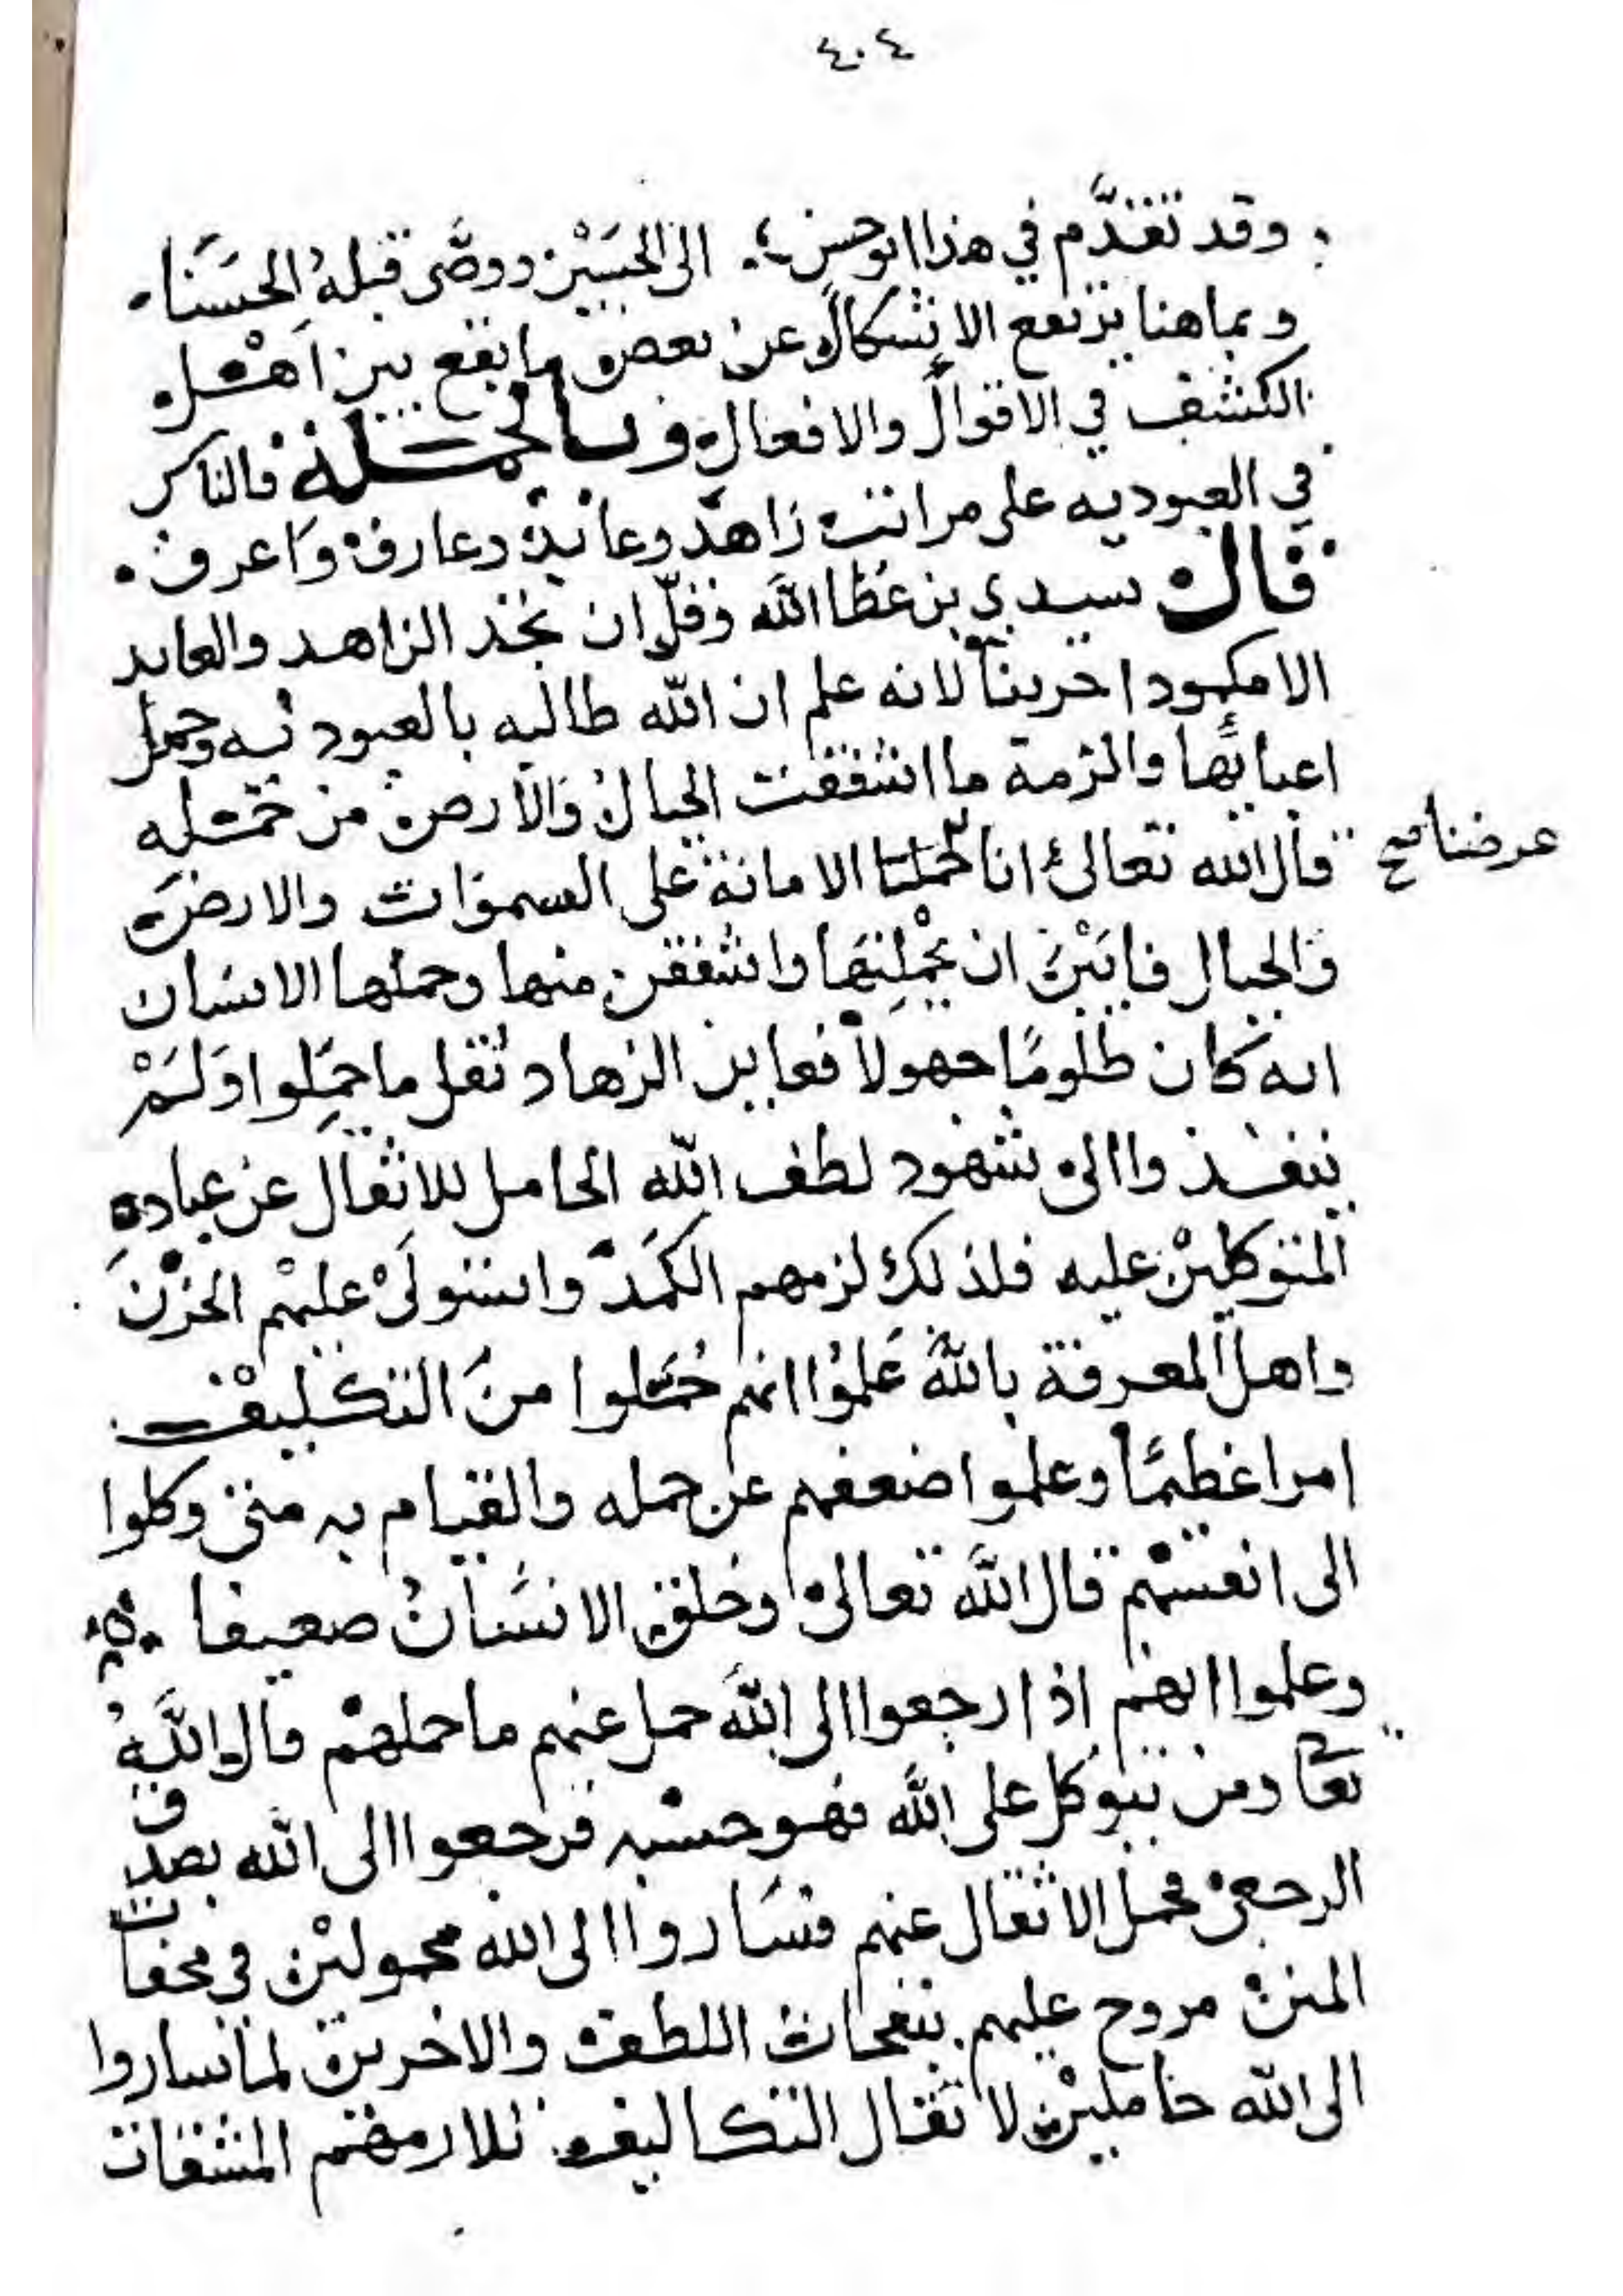 ٤٠٤
وقد تقدم في هذا ابو حسن الى الحسين ووصى قبله الحسنا
وبما هنا يرتفع الاشكال عن بعض ما يقع بين اهل
الكشف في الاقوال والافعال وبالجملة فالناس
في العبوديه على مراتب زاهد وعابد وعارف واعرف
قال سيدي بن عطا الله وقل ان تجد الزاهد والعابد
الا مكمودا حزينا لانه علم ان الله طالبه بالعبوديه وحمل
اعبائها والزمة ما اشفقت الجبال والارض من حمله
قال الله تعالى انا حملنا الامانة على السموات والارض
عرضنا صح
والجبال فابين ان يحملنها واشفقن منها وحملها الانسان
انه كان ظلوما جهولا فعاين الزهاد ثقل ما حملوا ولم
ينفذوا الى شهود لطف الله الحامل للاثقال عن عباده
المتوكلين عليه فلذلك لزمهم الكمد واستولى عليهم الحزن
واهل المعرفة بالله علموا انهم حملوا من التكليف
امرا عظيما وعلموا ضعفهم عن حمله والقيام به متى وكلوا
الى انفسهم قال الله تعالى وخلق الانسان ضعيفا
وعلموا انهم اذا رجعوا الى الله حمل عنهم ما حملهم قال الله
تعا ومن يتوكل على الله فهو حسبه فرجعوا الى الله بصدق
الرجعى فحمل الاثقال عنهم فساروا الى الله محمولين في محفات
المنن مروح عليهم بنفحات اللطف والاخرين لما ساروا
الى الله حاملين لاثقال التكاليف المشقات